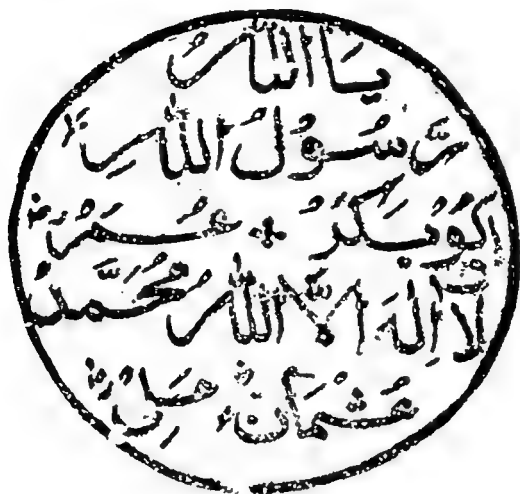 يَا اَللهُ
رَّسُوْلُ اللهِ
اَبُوْبَكَرُ عُمَرُ
لَا اِلٰهَ اِلَّا اللهُ مُحَمَّدُ
عُثْمَانُ عَلِىُّ